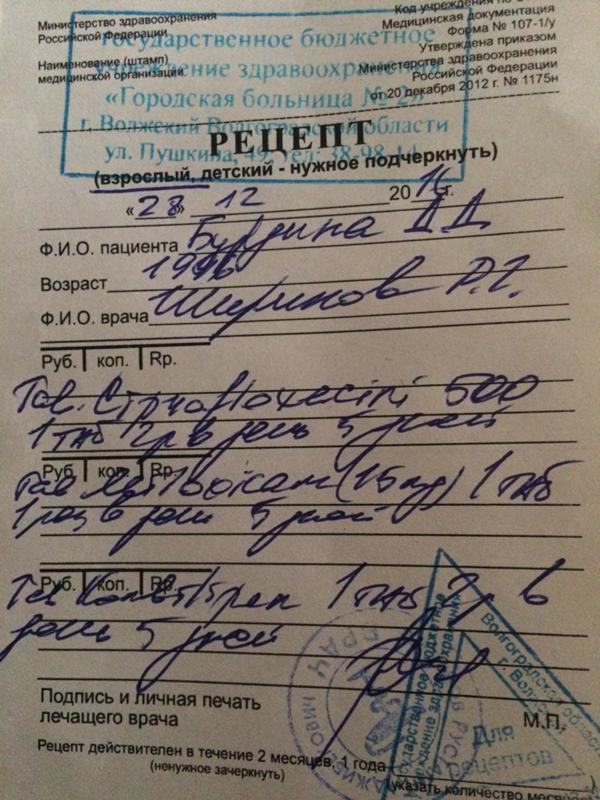 Министерство здравоохранения
Российской Федерации
Наименование (штамп)
медицинской организации
Код учреждения по
Медицинская документация
Форма № 107-1/у
Утверждена приказом
Министерства здравоохранения
Российской Федерации
от 20 декабря 2012 г. № 1175н
Государственное бюджетное
учреждение здравоохранения
«Городская больница № 2»
г. Волжский Волгоградской области
ул. Пушкина, 49, тел.
РЕЦЕПТ
(взрослый, детский - нужное подчеркнуть)
«28» 12 2016г.
Ф.И.О. пациента Бурдина Д Д
Возраст 1996
Ф.И.О. врача Ширинов Р.Г.
Руб. коп. Rp.
Tab. 500
1 таб 2 р в день 5 дней
Руб. коп. Rp.
Tab (15 mg) 1 таб
1 раз в день 5 дней
Руб. коп. Rp.
Tab 1 таб 2 р в
день 5 дней
Подпись и личная печать
лечащего врача
М.П.
ВРАЧ
Волгоградская область
г. Волжский
Государственное бюджетное
учреждение здравоохранения
Для
рецептов
Рецепт действителен в течение 2 месяцев, 1 года
(ненужное зачеркнуть)
(указать количество месяцев)